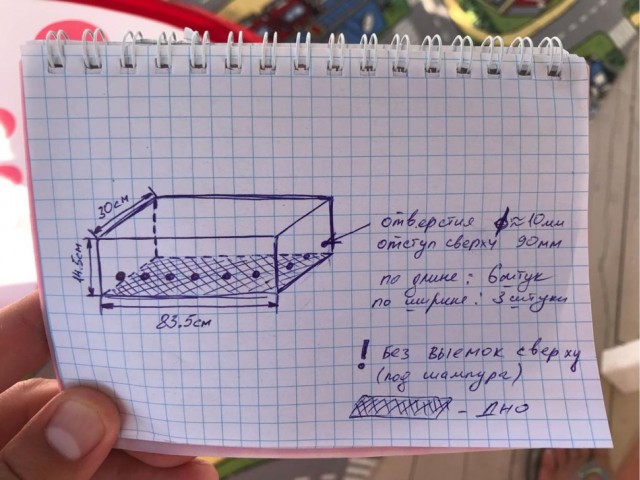 30см
14.5см
83.5см
отверстия ϕ≈10мм
отступ сверху 90мм
по длине: 6 штук
по ширине: 3 штуки
! Без выемок сверху
(под шампура)
- ДНО